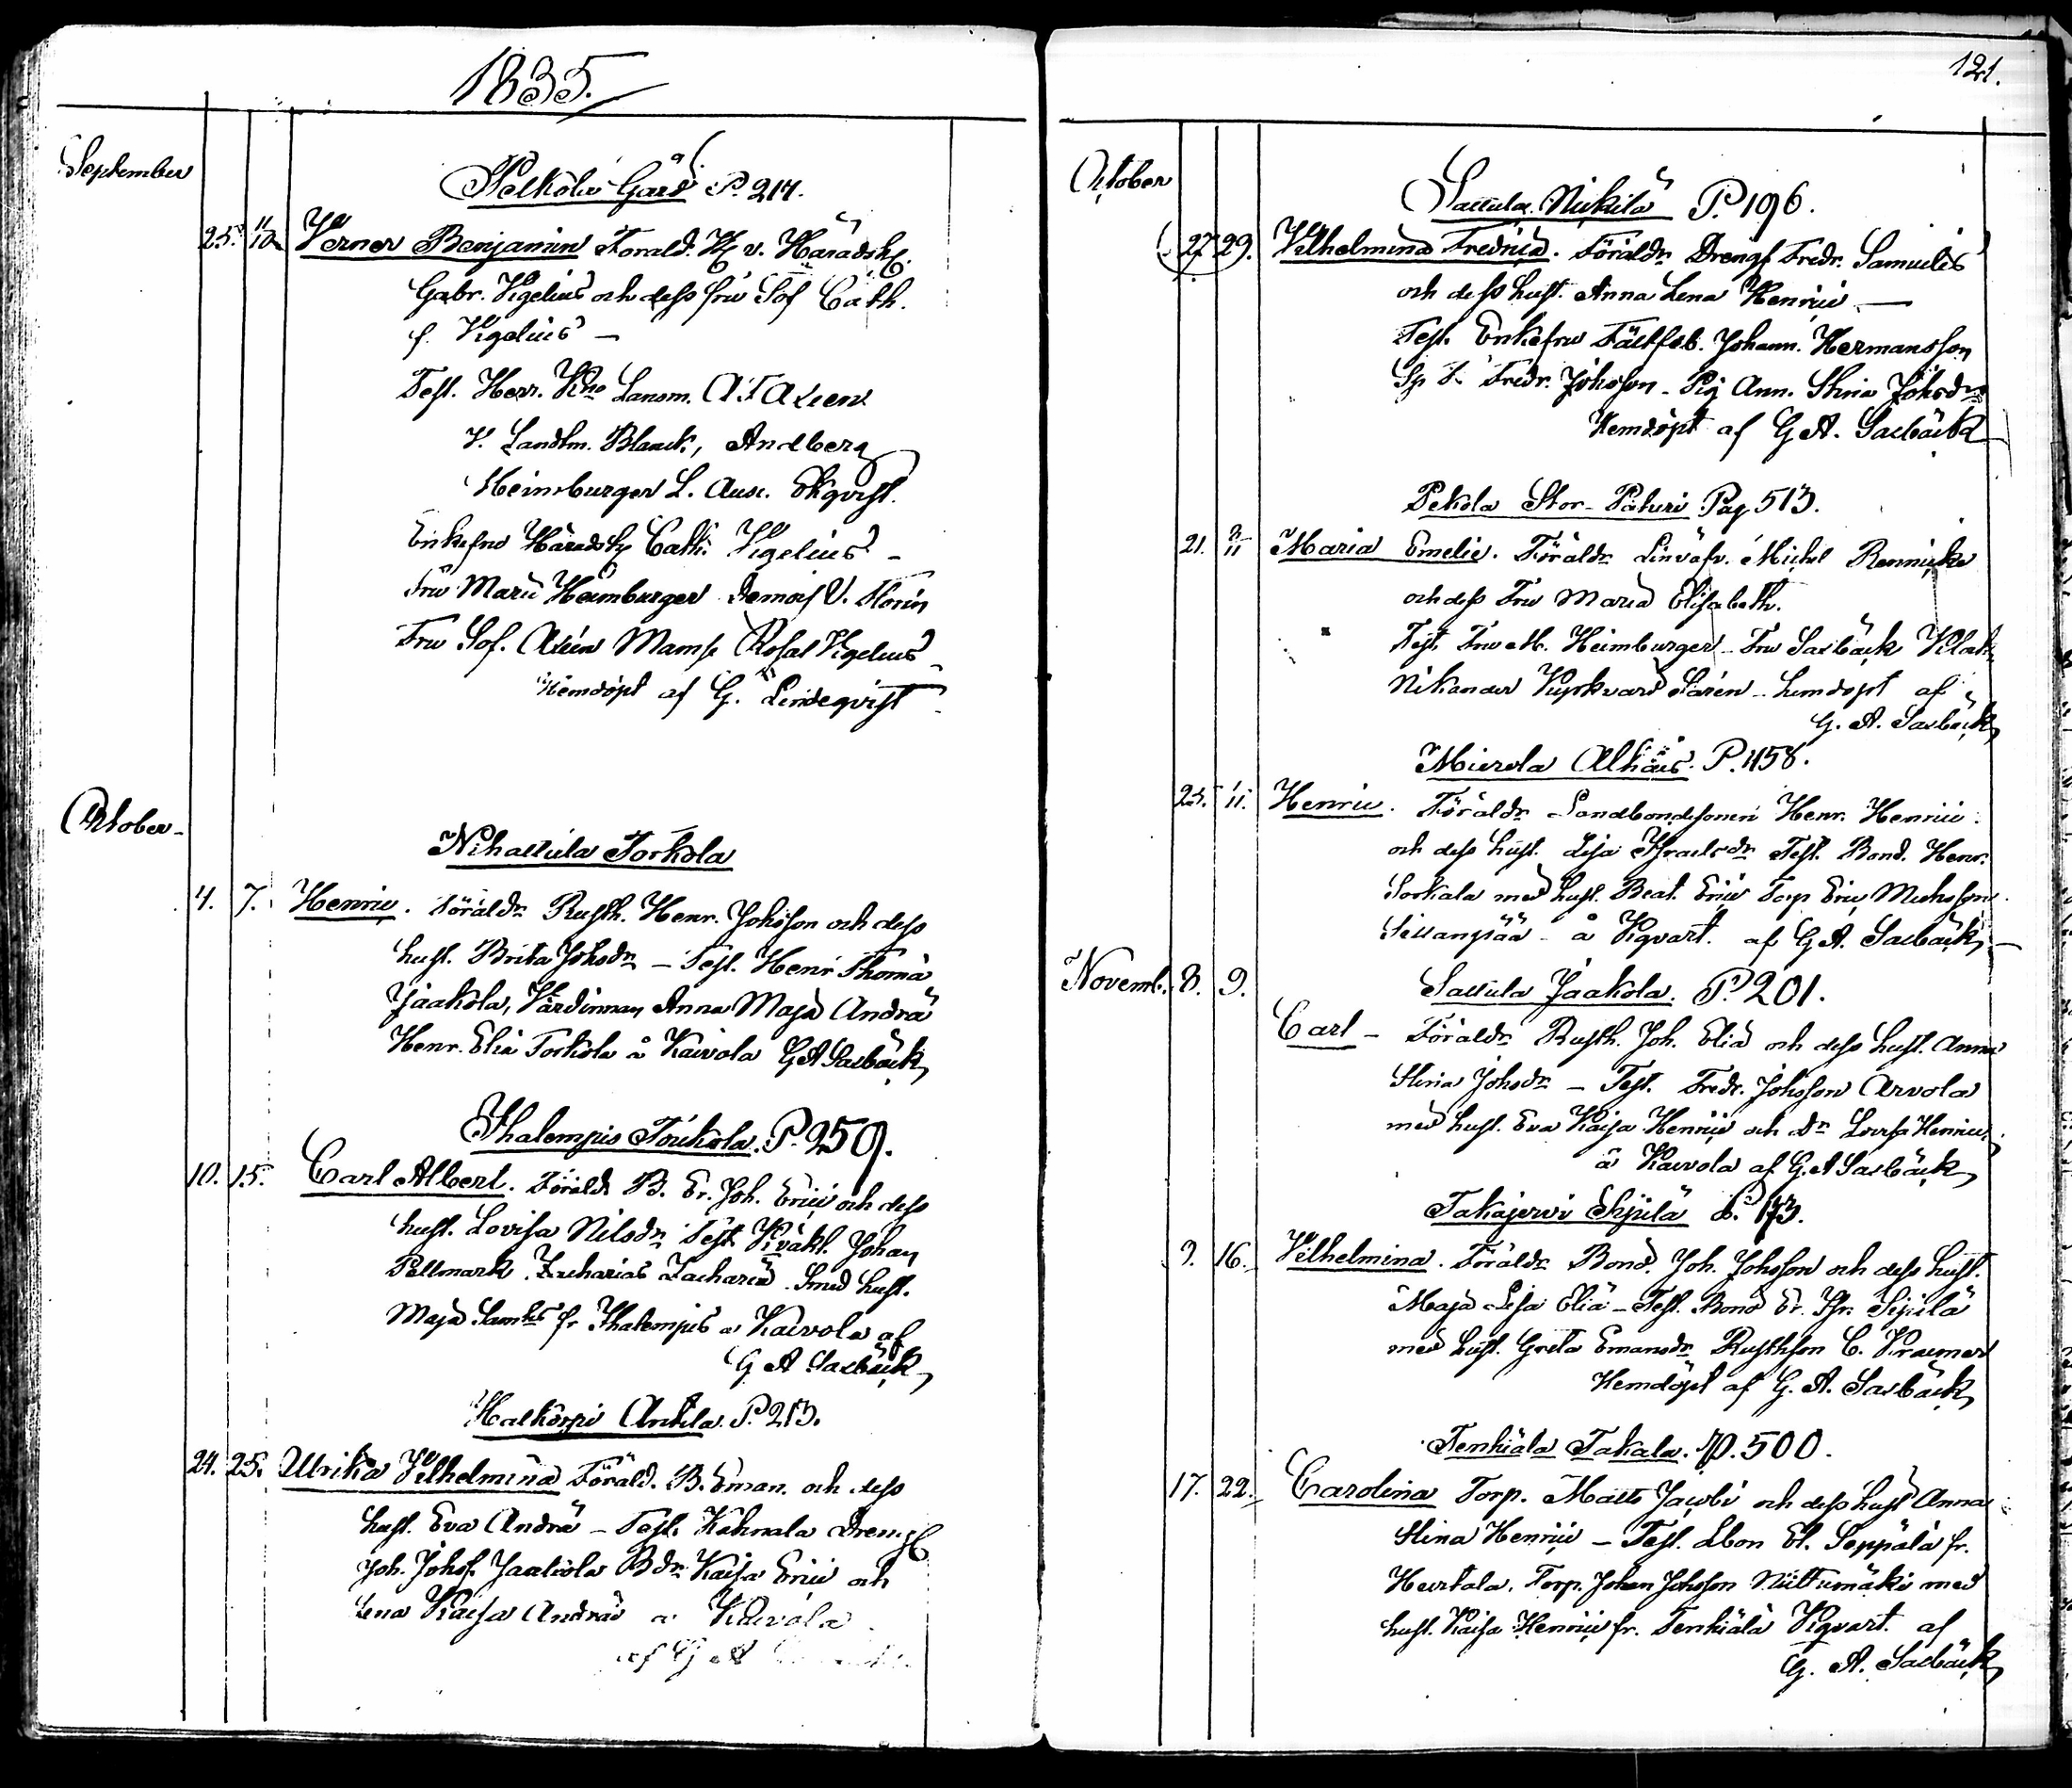 1835.
September
Pelkola Gård P. 214.
25. 11/10 Verner Benjamin Förald. H v. Häradsh.
Gabr. Vigelius och dess fru Sof Cath.
f. Vigelius —
Test. Herr. Kno Länsm. A. F. Axen
V. Landtm. Blanck, Andberg
Heimburger L. Ausc. Ekqvist.
Enkefru Häradsh Cath. Vigelius —
Fru Maria Heimburger Demois V. Florin
Fru Sof. Axén Mams. Rosal Vigelius
Hemdöpt af G. Lindeqvist
Oktober —
Nihattula Torkola
4. 7. Henric. Föräldr Rusth. Henr. Johsson och dess
hust. Brita Johsdr — Test. Henr Thomä
Jaakola, Värdinnan Anna Maja Andrä
Henr. Eliä Torkola å Kaivola G A Sacbäck
Thalempis Toukola. P. 259.
10. 15. Carl Albert. Föräld B. Er. Joh. Erici och dess
hust. Lovisa Nilsdr Test. Kvakt. Johan
Pellmark. Zacharias Zachariä Smed hust.
Maja Samls fr Thalempis a Kaivola af
G A Sacbäck
Halkorpi Anttila P. 213.
24. 25. Ulrika Vilhelmina Föräld. B. Eman. och dess
hust. Eva Andrä — Test. Kahnala Drengf
Joh. Johsf. Jaakola Bdr Kaisa Erici och
Lena Kaisa Andrä a Kaivola
af G A
121.
October
Sattula Nickilä P. 196.
27. 29. Vilhelmina Fredrica. Föräldr Drengf Fredr. Samuelis
och dess hust. Anna Lena Henrici —
Test. Enkefru Fältfeb. Johann. Hermansson
Fredr. Johsson — Pig Ann. Stina Johsdr
Hemdöpt af G A. Sacbäck
Pekola Stor-Päturi Pag 513.
21. 2/11 Maria Emelie. Föräldr Linväfv. Michel Rennicke
och dess Fru Maria Elisabeth.
Test. Fru M. Heimburger — Fru Sacbäck
Nikander Kyrkvard Sarén — hemdöpt af
G. A. Sacbäck
Mierola Alhais. P. 458.
25. 1/11. Henric. Föräldr Landbondesonen Henr. Henrici
och dess hust. Lisa Israelsdr Test. Bond. Henr.
Sorkala med hust. Beat. Erici Torp Eric Michsson
Sillanpää — å Kqvart. af G A. Sacbäck —
Novemb. 8. 9.
Sattula Jaakola. P. 201.
Carl — Föräldr Rusth. Joh. Eliä och dess hust. Anna
Stina Johsdr — Test. Fredr. Johsson Arvola
med hust. Eva Kaisa Henrici och dr Lovisa Henrici
å Kaivola af G. A Sacbäck
Takajervi Skijilä P. 173.
9. 16. Vilhelmina. Föräldr Bond. Joh. Johsson och dess hust.
Maja Lisa Eliä — Test. Bond Er. Sipilä
med hust. Greta Emansdr Rusthson C. Kraemer
Hemdöpt af G. A. Sacbäck
Tenkiälä Takala. P. 500.
17. 22. Carolina Torp. Matts Jacobi och dess hust Anna
Stina Henrici — Test. Lbon El. Seppälä fr.
Hurtala, Torp. Johan Johsson Niittumäki med
hust. Kaisa Henrici fr. Tenkiälä Kqvart. af
G. A. Sacbäck